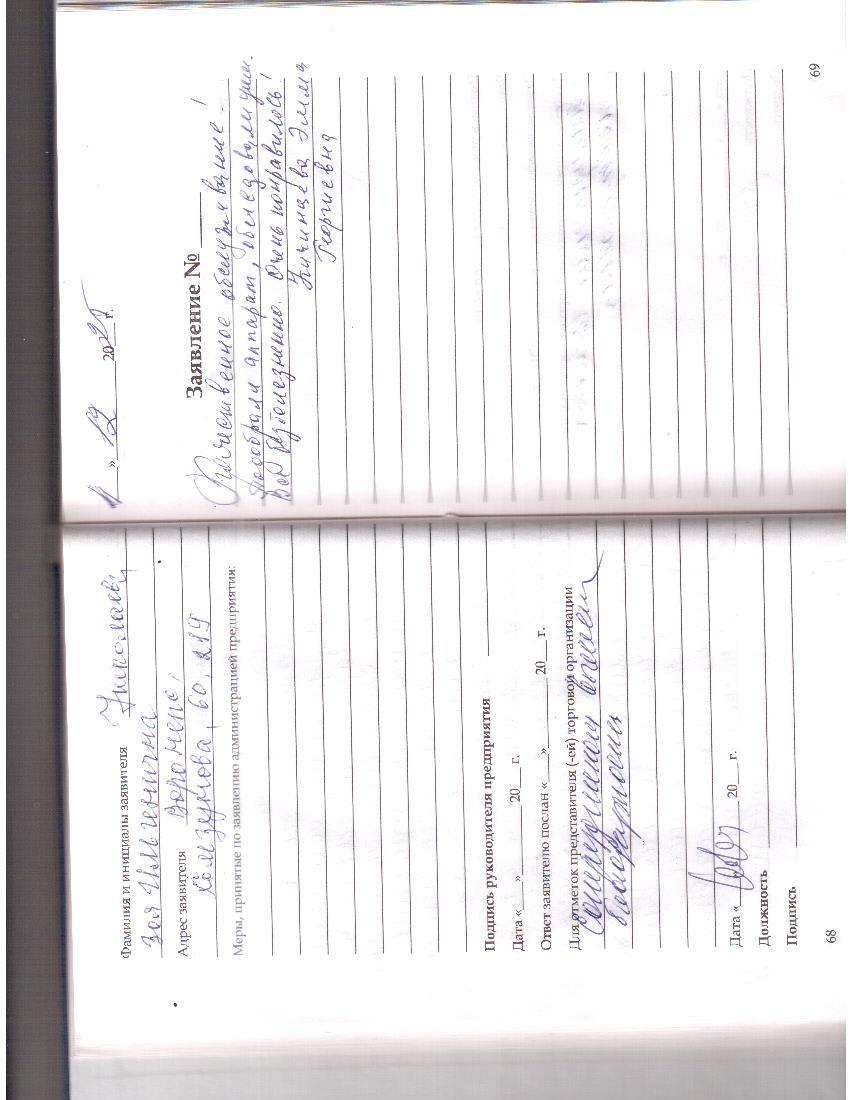 Фамилия и инициалы заявителя Николаева
Зоя Ильинична
Адрес заявителя Воронеж,
Комзунова, 60, 219
Меры, принятые по заявлению администрацией предприятия:
Подпись руководителя предприятия
Дата «___» ________ 20___ г.
Ответ заявителю послан «___» ________ 20___ г.
Для отметок представителя (-ей) торговой организации
Сотрудникам
благодарность
Дата « 20___ г.
Должность
Подпись
68
» 12 2025 г.
Заявление № ____
Качественное обслуживание!
Подобрали аппарат, обследовали уши.
Всё безболезненно. Очень понравилось!
Эмма
Георгиевна
69